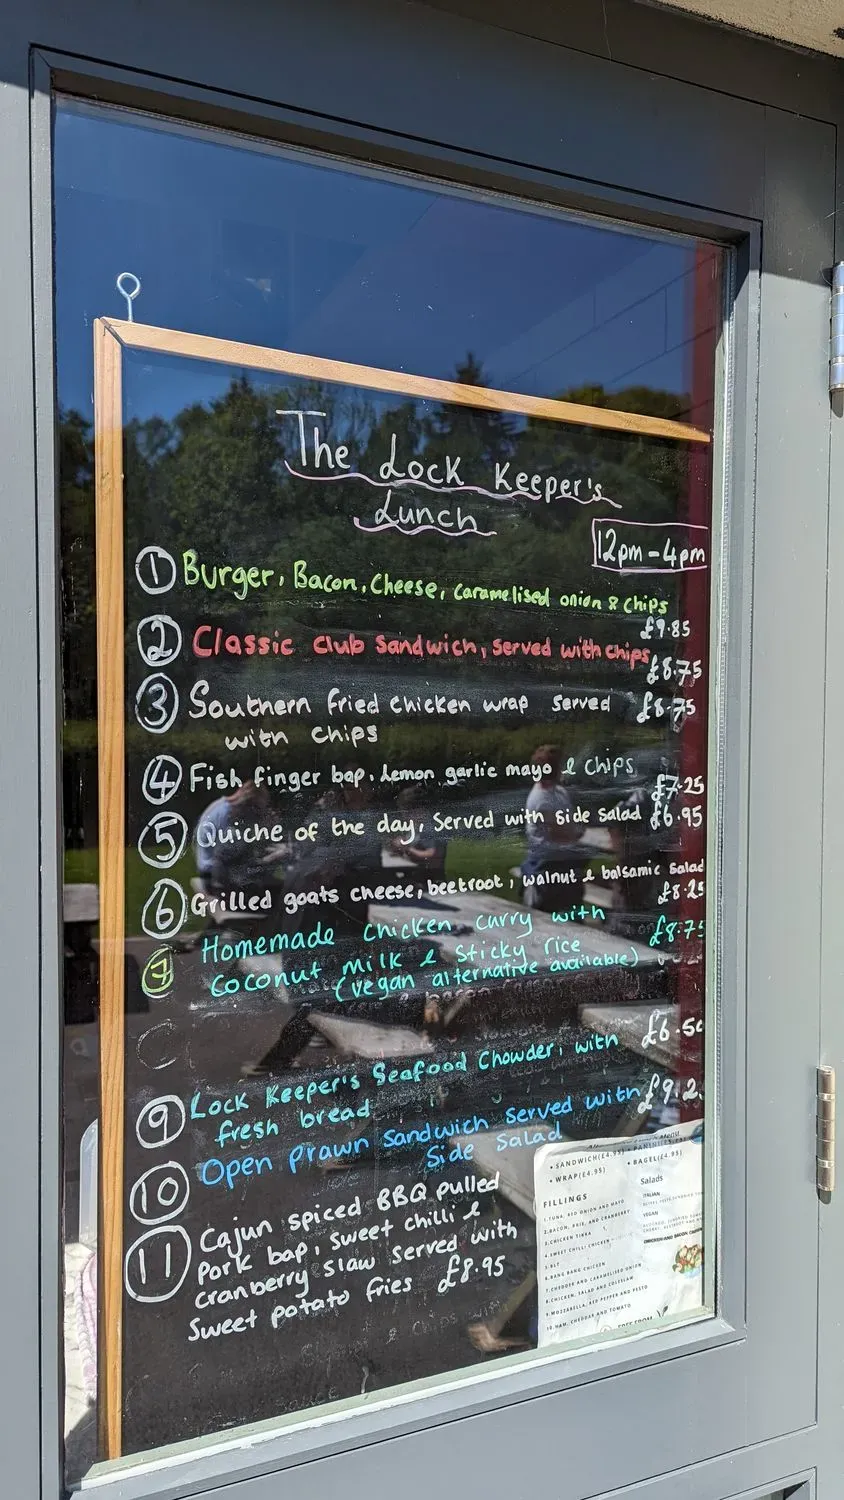 The Lock Keeper's
Lunch
12pm - 4pm
1 Burger, Bacon, Cheese, caramelised onion & chips
£9.85
2 Classic club sandwich, served with chips
£8.75
3 Southern fried chicken wrap served £8.75
with chips
4 Fish finger bap, lemon garlic mayo & chips
£7.25
5 Quiche of the day, served with side salad £6.95
6 Grilled goats cheese, beetroot, walnut & balsamic salad
£8.25
7 Homemade chicken curry with £8.75
coconut milk & sticky rice
(vegan alternative available)
9 Lock Keeper's Seafood Chowder, with £6.50
fresh bread
10 Open prawn sandwich served with £9.2
side salad
11 Cajun spiced BBQ pulled
pork bap, sweet chilli &
cranberry slaw served with
sweet potato fries £8.95
• SANDWICH(£4.95) • PANINI(£5.
• WRAP(£4.95) • BAGEL(£4.95)
FILLINGS
1.TUNA, RED ONION AND MAYO
2.BACON, BRIE, AND CRANBERRY
3.CHICKEN TIKKA
4.SWEET CHILLI CHICKEN
5.BLT
6.BANG BANG CHICKEN
7.CHEDDAR AND CARAMELISED ONION
8.CHICKEN, SALAD AND COLESLAW
9.MOZZARELLA, RED PEPPER AND PESTO
10.HAM, CHEDDAR AND TOMATO
Salads
ITALIAN
VEGAN
CHICKEN AND BACON